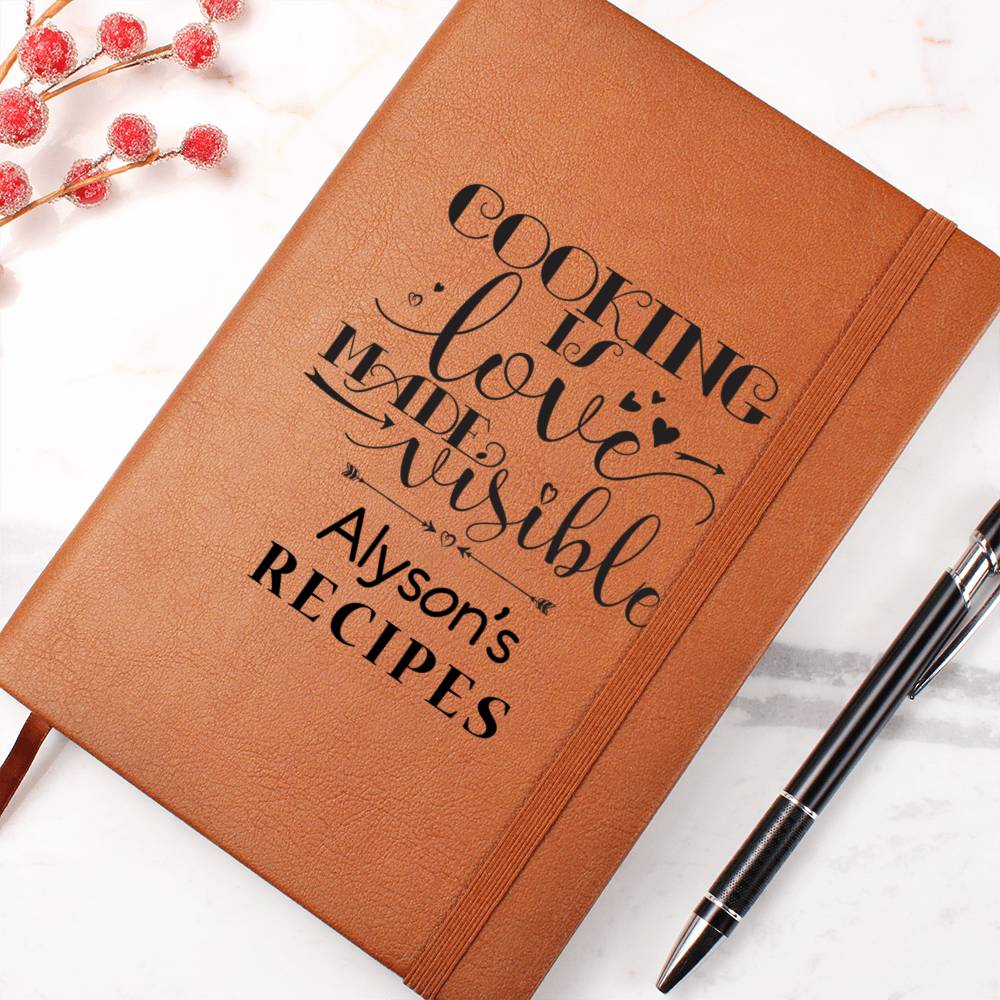 COOKING
IS
love
MADE
visible
Alyson's
RECIPES